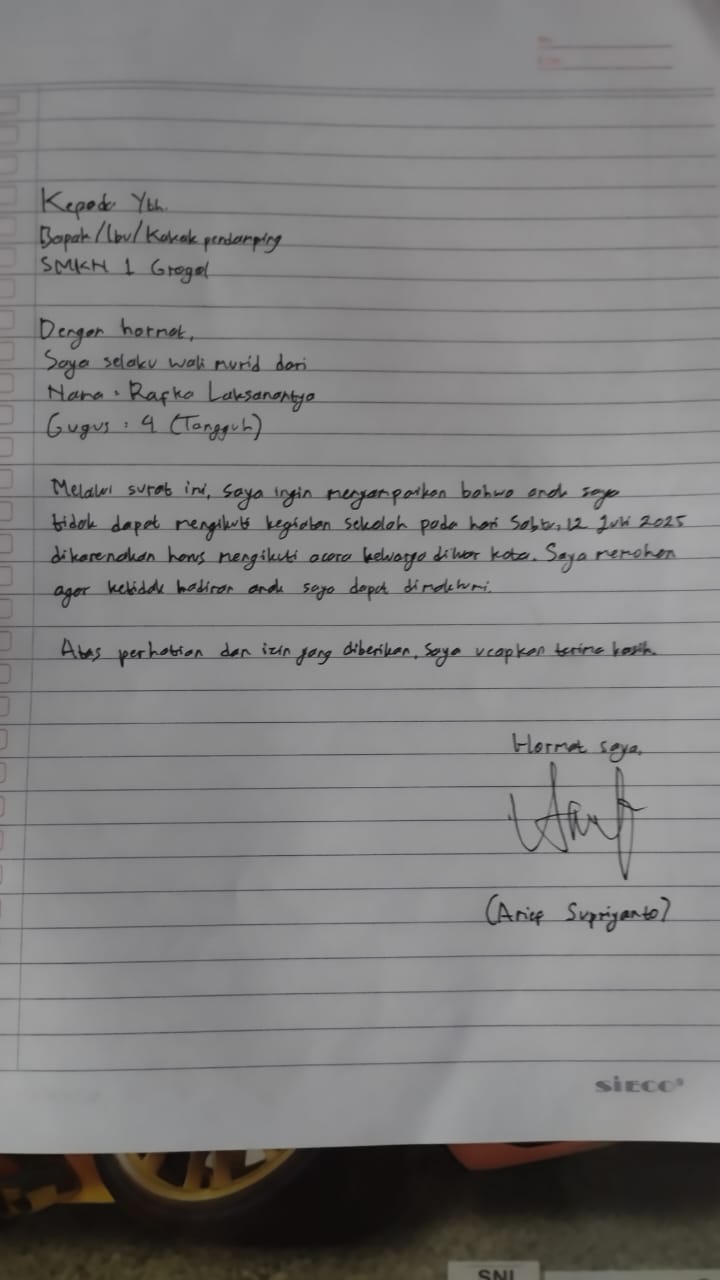 Kepada Yth.
Bapak/Ibu/Kakak pendamping
SMKN 1 Grogol
Dengan hormat,
Saya selaku wali murid dari
Nama : Rafka Laksanantyo
Gugus : 4 (Tangguh)
Melalui surat ini, saya ingin menyampaikan bahwa anak saya
tidak dapat mengikuti kegiatan sekolah pada hari Sabtu, 12 Juli 2025
dikarenakan harus mengikuti acara keluarga diluar kota. Saya memohon
agar ketidak hadiran anak saya dapat dimaklumi.
Atas perhatian dan izin yang diberikan, saya ucapkan terima kasih.
Hormat saya,
(Arief Supriyanto)
SiECO
SNI